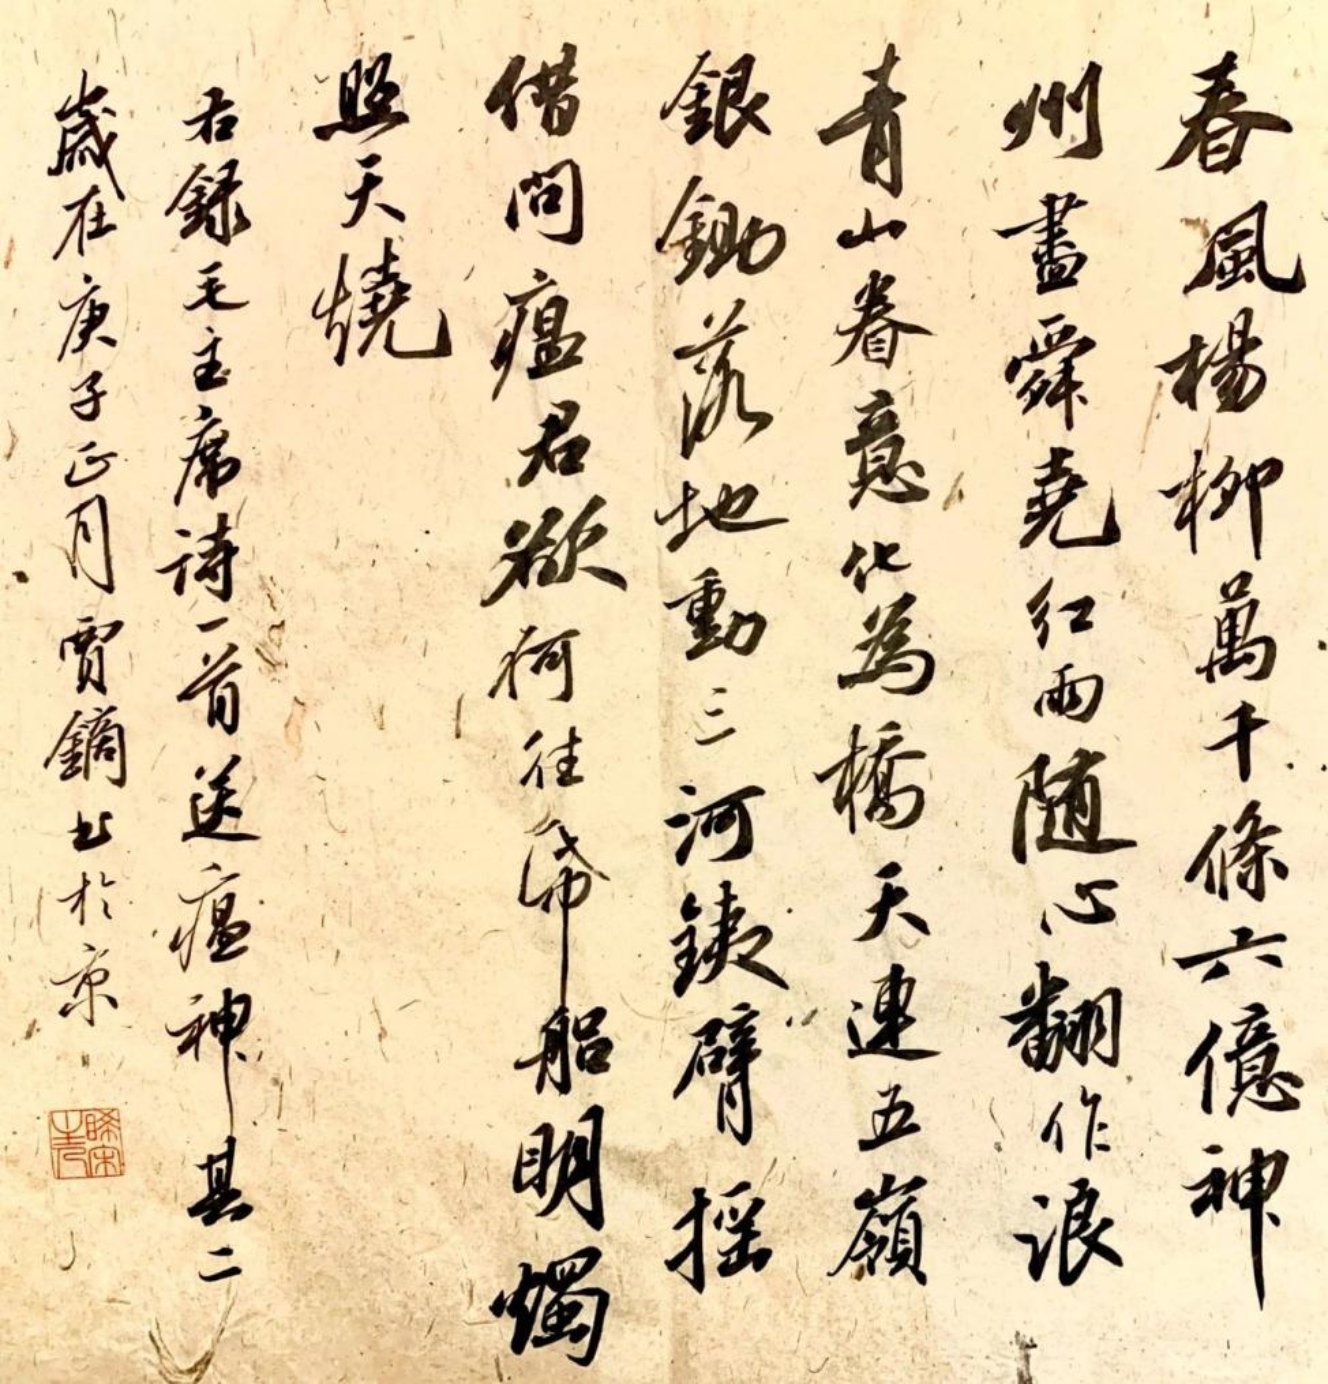 春風楊柳萬千條六億神
州盡舜堯紅雨随心翻作浪
青山眷意化為橋天連五嶺
銀鋤落地動三河鐵臂摇
借問瘟君欲何往帋船明燭
照天燒
右録毛主席诗一首送瘟神其二
歲在庚子正月賈鏑书於京